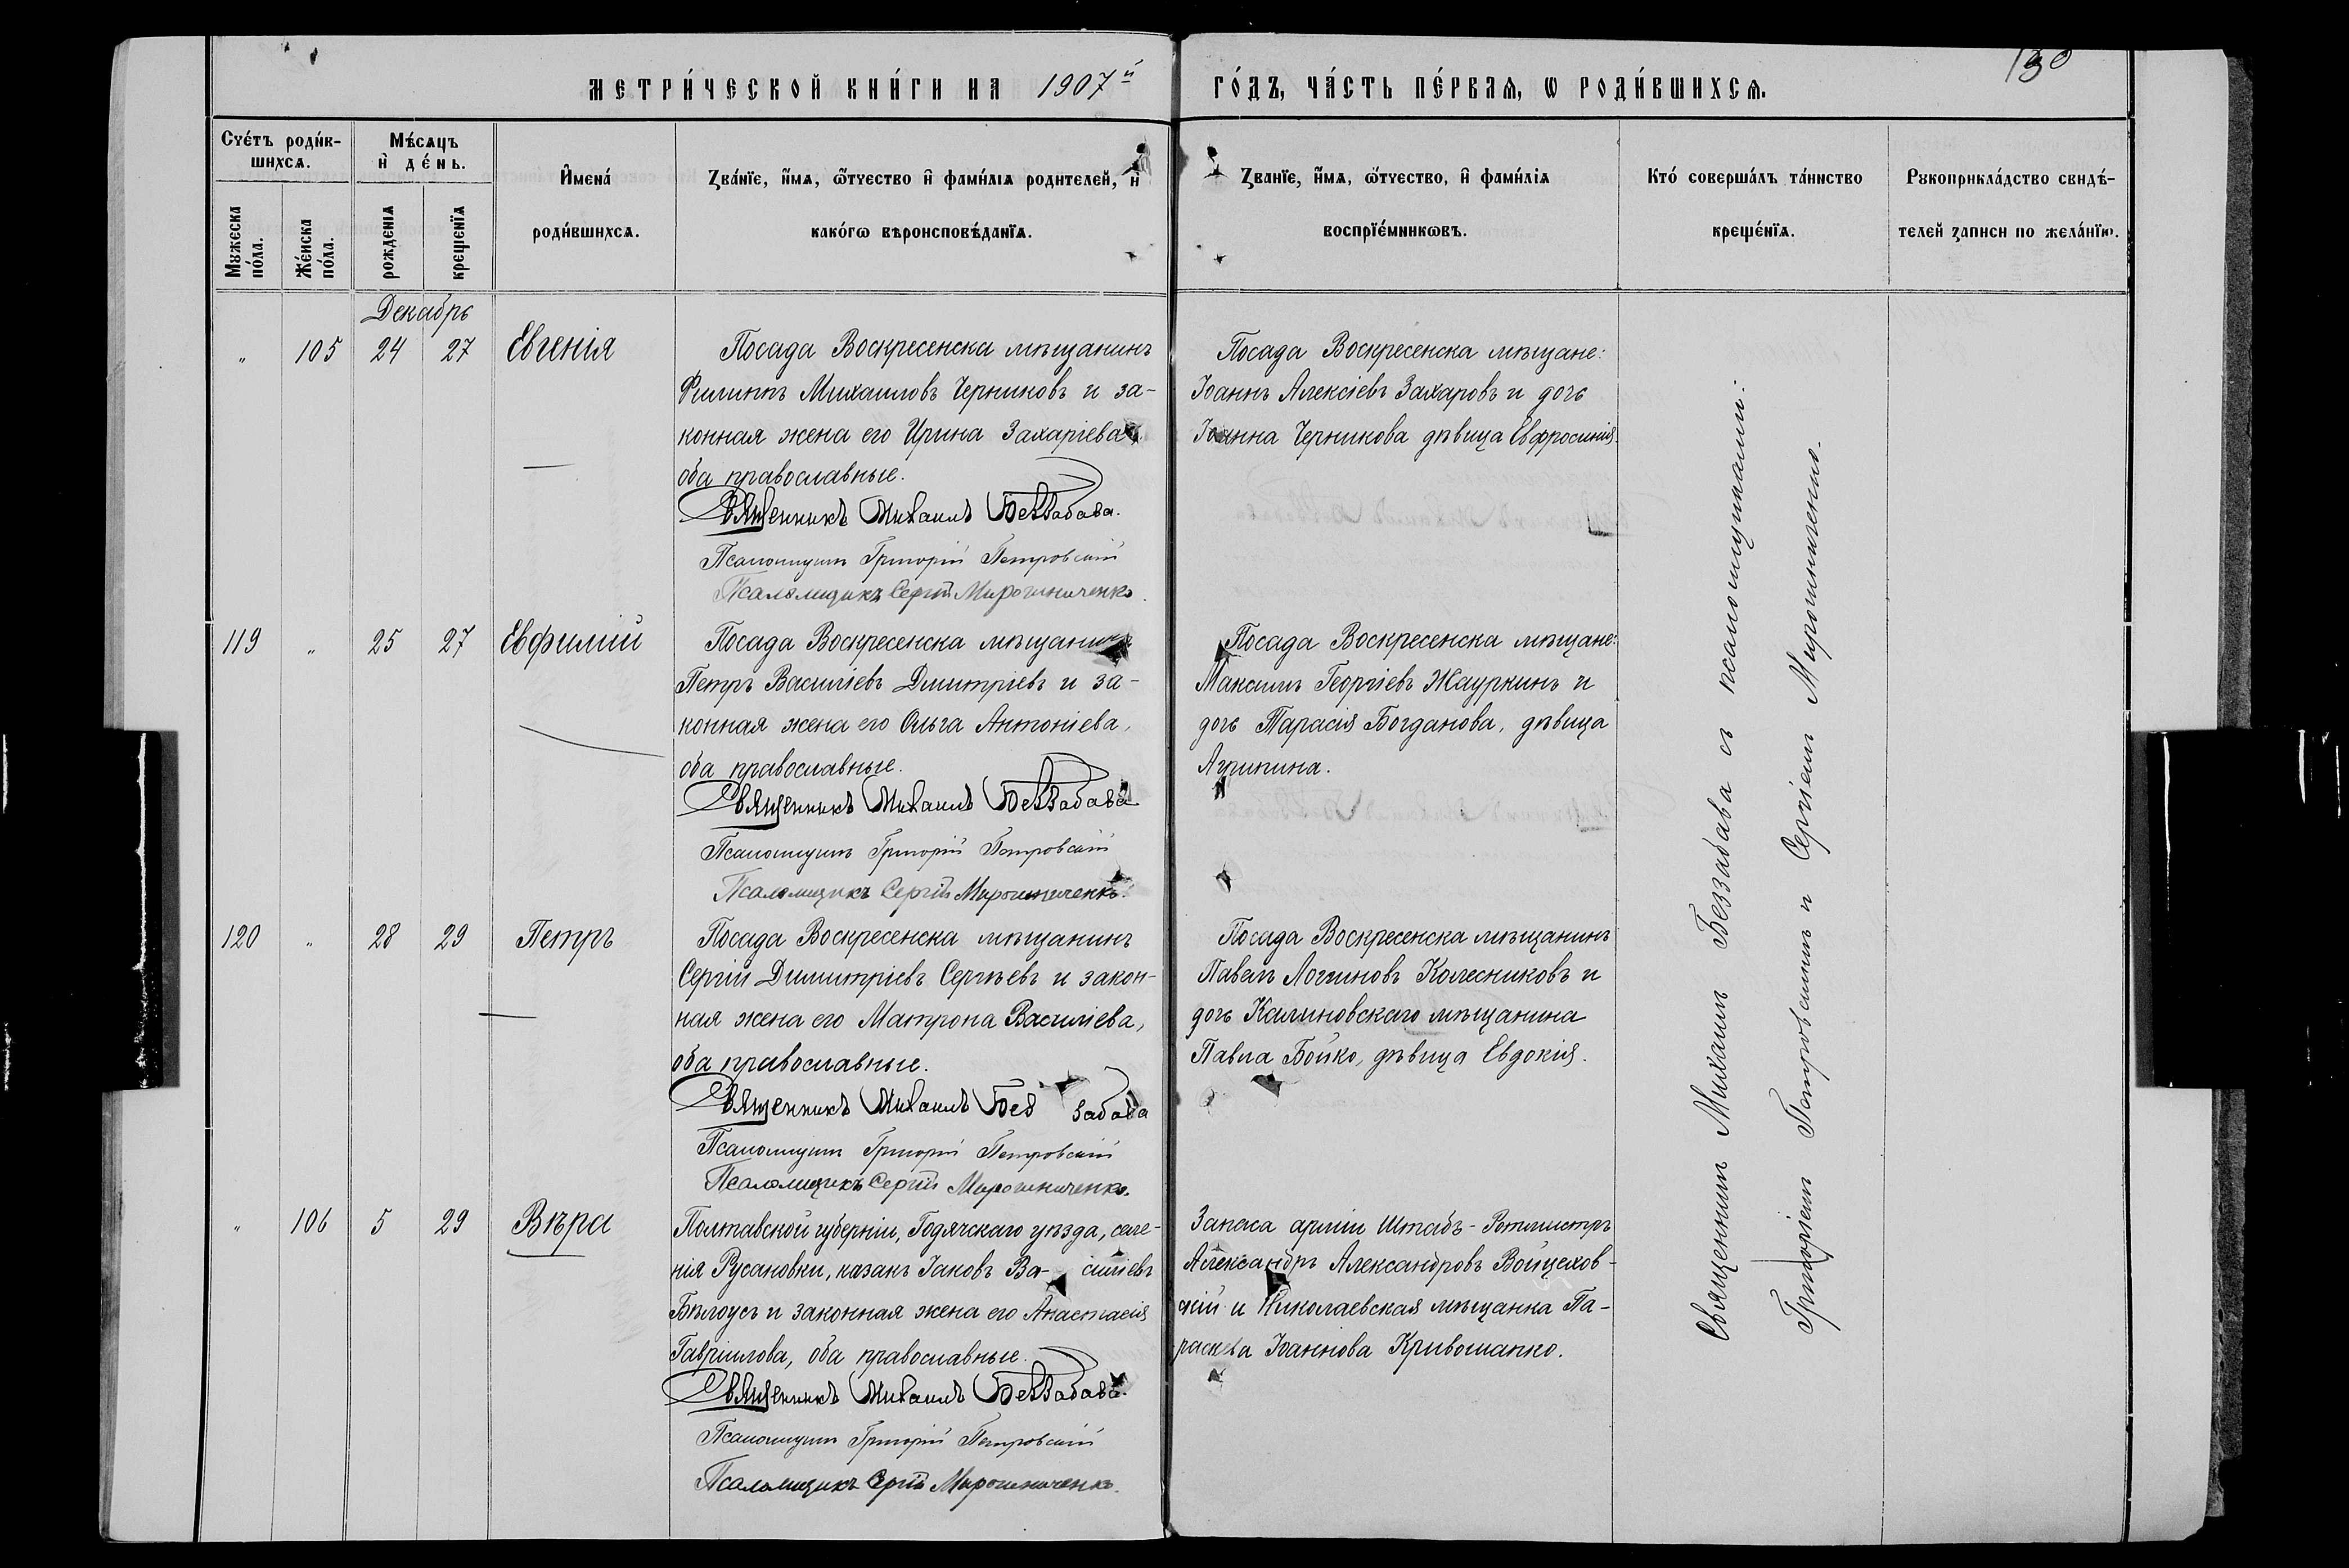 МЕТРИ́ЧЕСКОЙ КНИ́ГИ НА 1907й
ГО́ДЪ, ЧА́СТЬ ПЕ́РВАѦ, Ѡ РОДИ́ВШИХСѦ.
Сче́тъ роди́в-
шихсѧ.
Мѣ́сѧцъ
и҆ де́нь.
Мꙋжеска
по́ла.
Же́нска
по́ла.
рожденїѧ
крещенїѧ
И҆мена́
роди́вшихсѧ.
Зва́нїе, и҆́мѧ, ѻ҆́тчество и҆ фами́лїѧ родителей, и҆
како́гѡ вѣроисповѣ́данїѧ.
Зва́нїе, и҆́мѧ, ѻ҆́тчество, и҆ фами́лїѧ
воспрїе́мникѡвъ.
Кто́ соверша́лъ та́инство
креще́нїѧ.
Рꙋкоприкла́дство свидѣ́-
телей записи по жела́нїю.
Декабрь
„ 105 24 27 Евгенія
Посада Воскресенска мѣщанинъ
Филиппъ Михаиловъ Черниковъ и за-
конная жена его Ирина Захаріева,
оба православные.
Священникъ Михаилъ Беззабава.
Псаломщикъ Григорій Петровскій
Псаломщикъ Сергій Мирошниченко.
Посада Воскресенска мѣщане:
Іоаннъ Алексіевъ Захаровъ и дочь
Іоанна Черникова дѣвица Евфросинія.
119 „ 25 27 Евфимій
Посада Воскресенска мѣщанинъ
Петръ Василіевъ Дмитріевъ и за-
конная жена его Ольга Антоніева,
оба православные.
Священникъ Михаилъ Беззабава
Псаломщикъ Григорій Петровскій
Псаломщикъ Сергій Мирошниченко.
Посада Воскресенска мѣщане:
Максимъ Георгіевъ Жауркинъ и
дочь Тарасія Богданова, дѣвица
Агрипина.
120 „ 28 29 Петръ
Посада Воскресенска мѣщанинъ
Сергій Димитріевъ Сергѣевъ и закон-
ная жена его Матрона Василіева,
оба православные.
Священникъ Михаилъ Без забава
Псаломщикъ Григорій Петровскій
Псаломщикъ Сергій Мирошниченко.
Посада Воскресенска мѣщанинъ
Павелъ Логиновъ Колесниковъ и
дочь Калиновскаго мѣщанина
Павла Бойко, дѣвица Евдокія.
„ 106 5 29 Вѣра
Полтавской губерніи, Годячскаго уѣзда, селе-
нія Русановки, казакъ Іаковъ Ва- силіевъ
Бѣлоусъ и законная жена его Анастасія
Гавріилова, оба православные.
Священникъ Михаилъ Беззабава.
Псаломщикъ Григорій Петровскій
Псаломщикъ Сергій Мирошниченко.
Запаса арміи Штабъ-Ротмистръ
Александръ Александровъ Войцехов-
скій и Николаевская мѣщанка Па-
раскева Іоаннова Кривошапко.
Священникъ Михаилъ Беззабава съ псаломщиками:
Григоріемъ Петровскимъ и Сергіемъ Мирошниченко.